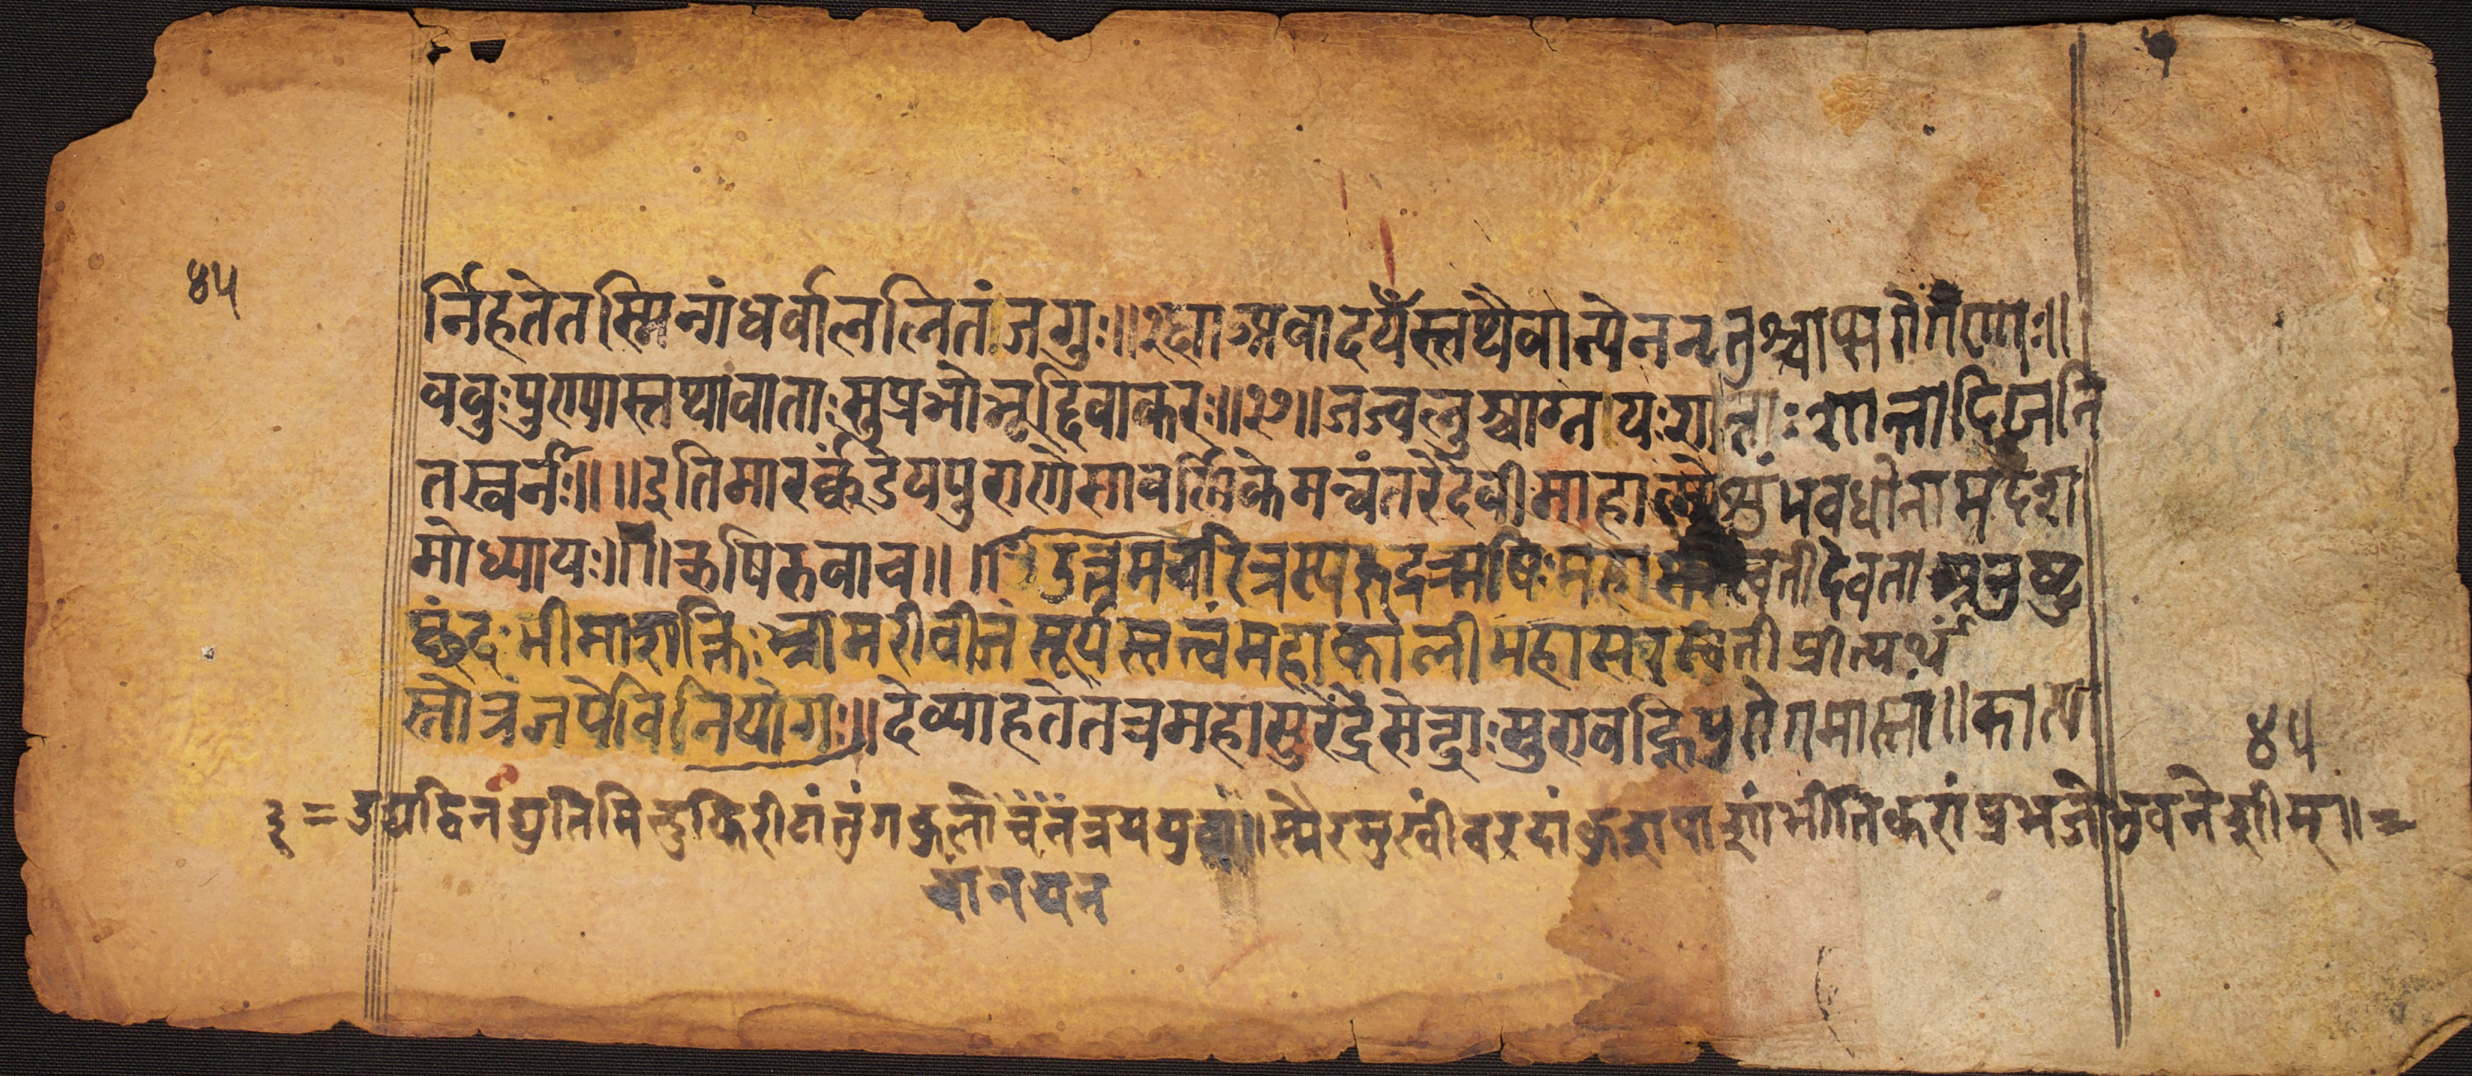 ४५
र्निहते तस्मिन्गंधर्वा ललितं जगुः॥ २६॥ अवादयँस्तथैवान्ये ननृतुश्चाप्सरोगणाः॥
ववुः पुण्यास्तथा वाताः सुप्रभोभूद्दिवाकरः॥ २७॥ जज्वलुश्चाग्नयः शान्ताः शान्तादिग्जनि
तस्वनाः॥ ॥ इति मारर्क्कंडेयपुराणे सावर्णिके मन्वंतरे देवीमाहात्म्ये शुंभवधो नाम दश
मोध्यायः॥ ॥ ऋषिरुवाच॥ ॥ उत्तमचरित्रस्य रुद्रऋषिः महासरस्वती देवता अनुष्टु
प्छंदः भीमाशक्तिः भ्रामरी वीजं सूर्यस्तत्त्वं महाकाली महासरस्वती प्रीत्यर्थं
स्तोत्रं जपे विनियोगः॥ देव्या हते तत्र महासुरेंद्रे सेन्द्राः सुरा वह्निपुरोगमास्तां॥ कात्या
४५
३ = उद्यद्दिनद्युतिमिन्दुकिरीटां तुंगकुचां नयनत्रययुक्तां॥ स्मेरमुखीं वरदांकुशपाशांभीतिकरां प्रभजे भुवनेशीम्॥ =
चां नयन